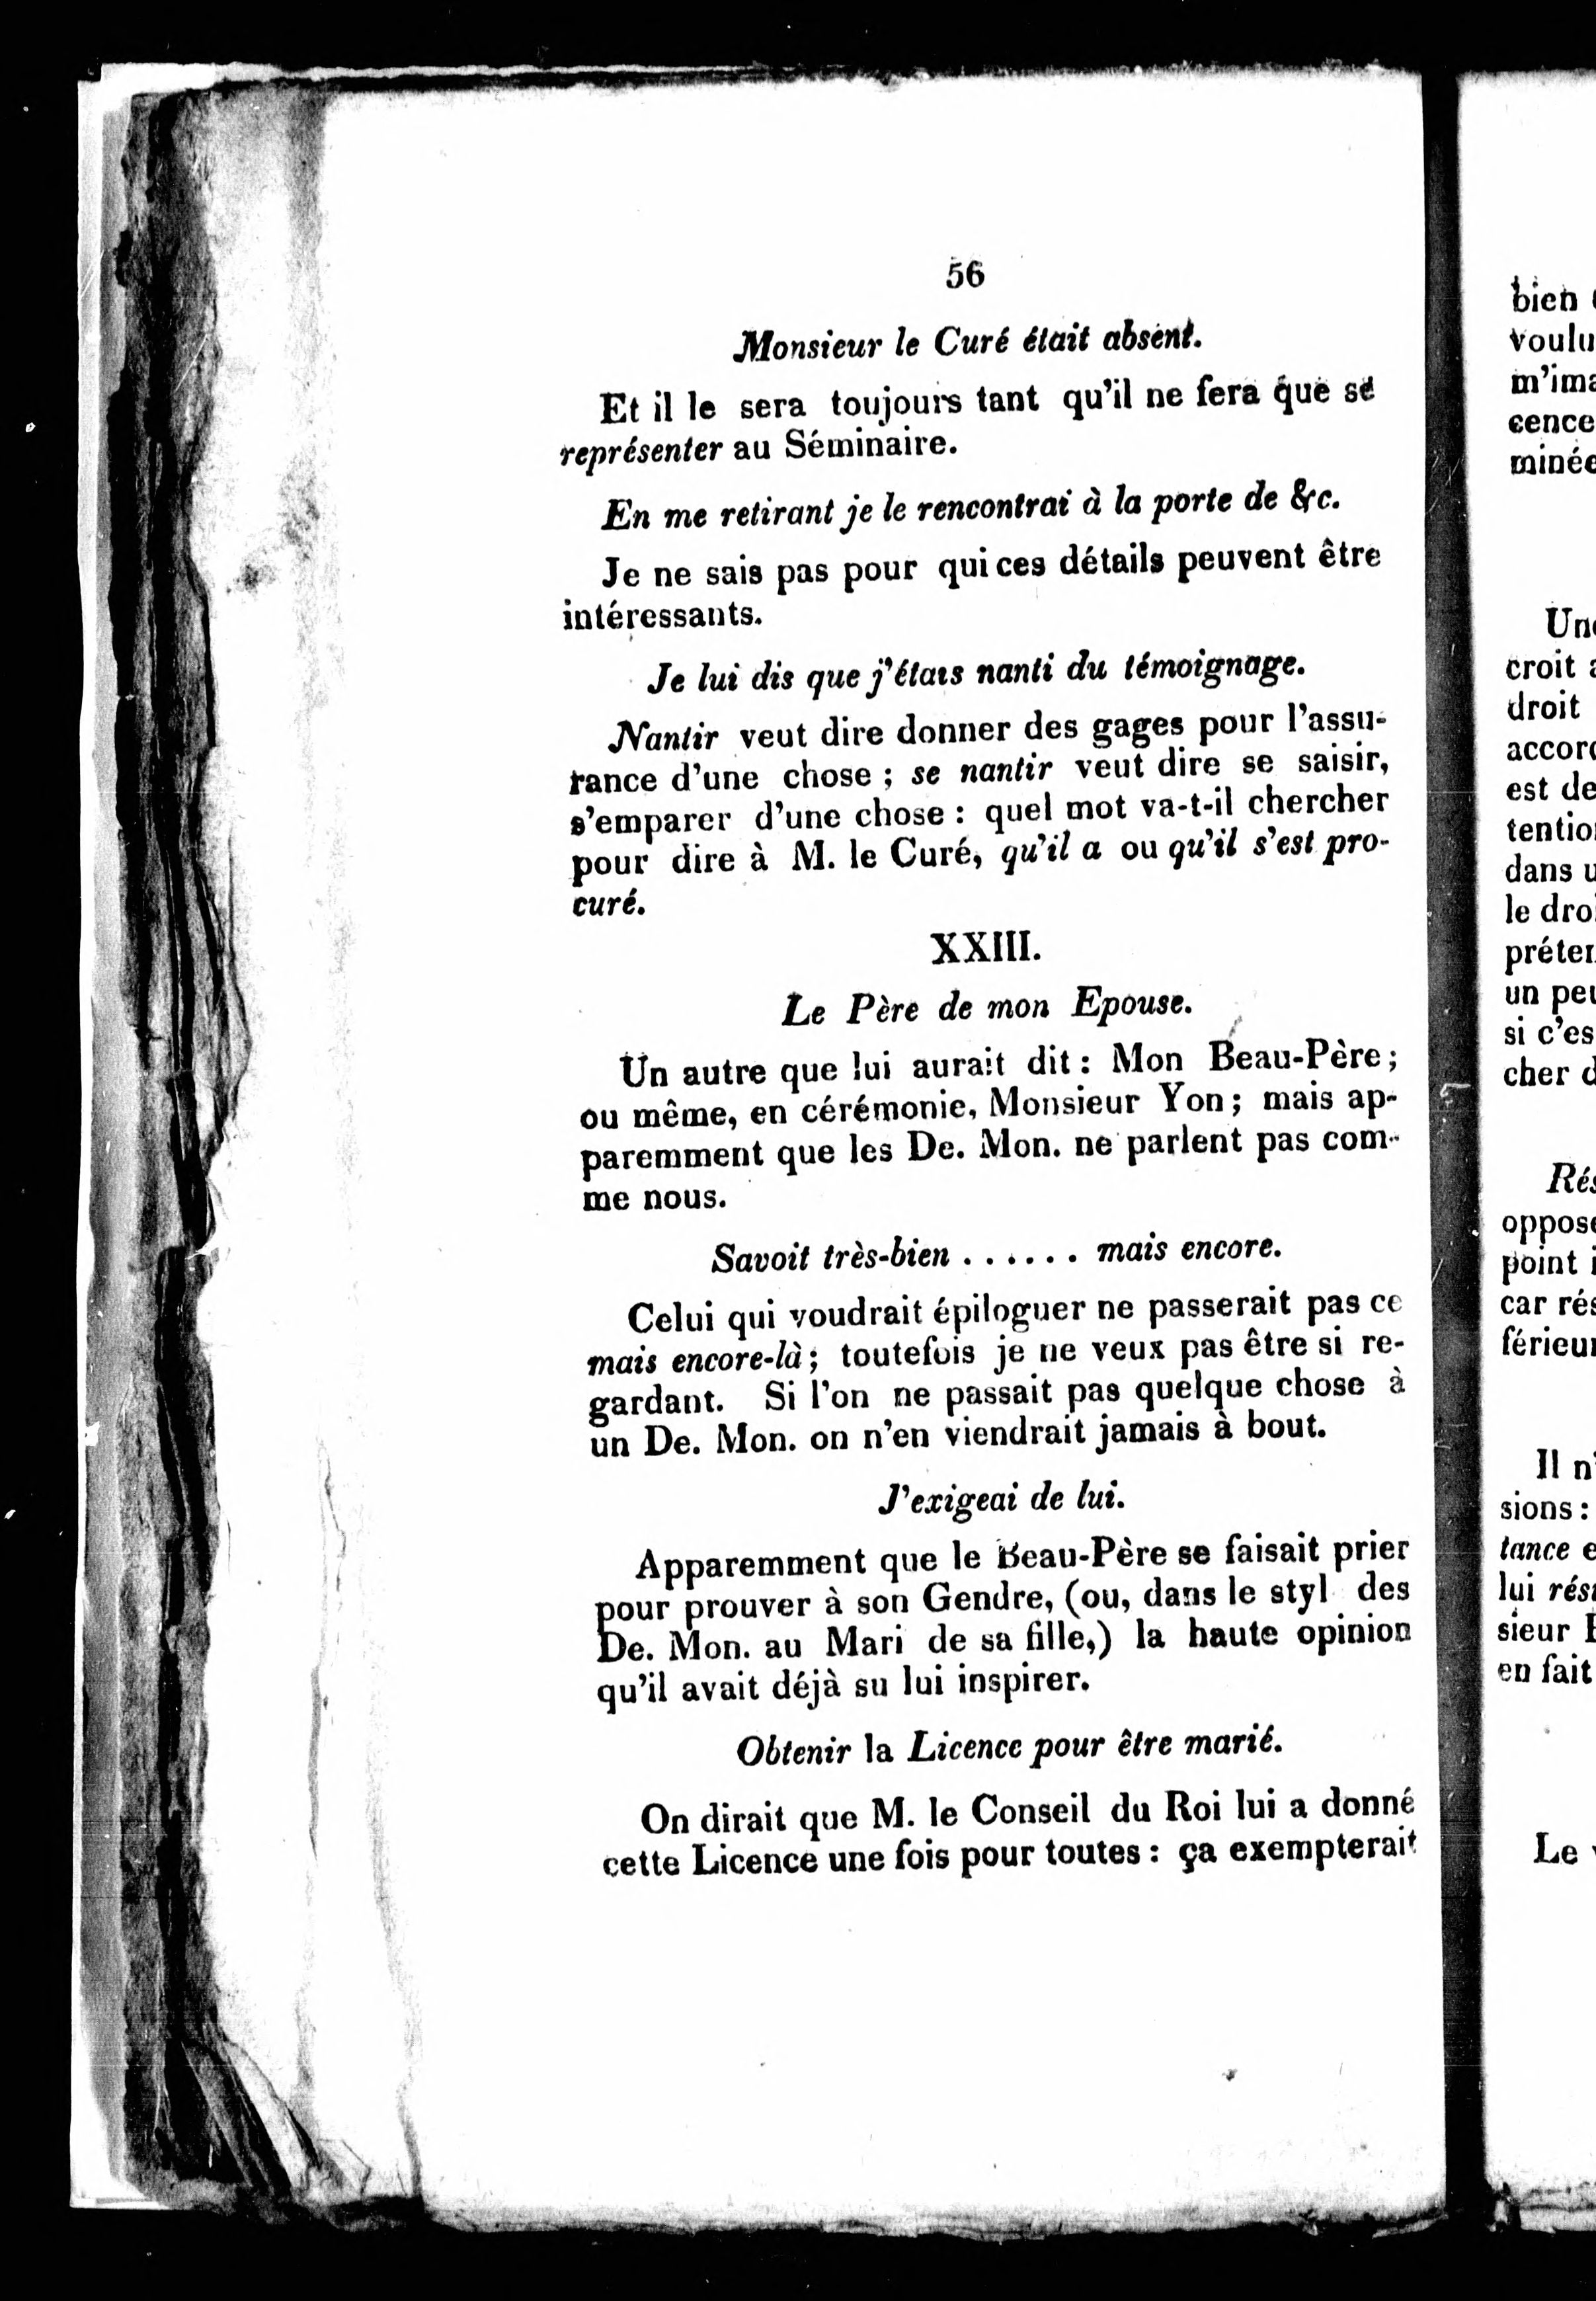 56
Monsieur le Curé était absent.
Et il le sera toujours tant qu'il ne fera que se
représenter au Séminaire.
En me retirant je le rencontrai à la porte de &c.
Je ne sais pas pour qui ces détails peuvent être
intéressants.
Je lui dis que j'étais nanti du témoignage.
Nantir veut dire donner des gages pour l'assu-
rance d'une chose ; se nantir veut dire se saisir,
s'emparer d'une chose : quel mot va-t-il chercher
pour dire à M. le Curé, qu'il a ou qu'il s'est pro-
curé.
XXIII.
Le Père de mon Epouse.
Un autre que lui aurait dit : Mon Beau-Père ;
ou même, en cérémonie, Monsieur Yon ; mais ap-
paremment que les De. Mon. ne parlent pas com-
me nous.
Savoit très-bien . . . . . . mais encore.
Celui qui voudrait épiloguer ne passerait pas ce
mais encore-là ; toutefois je ne veux pas être si re-
gardant. Si l'on ne passait pas quelque chose à
un De. Mon. on n'en viendrait jamais à bout.
J'exigeai de lui.
Apparemment que le Beau-Père se faisait prier
pour prouver à son Gendre, (ou, dans le styl des
De. Mon. au Mari de sa fille,) la haute opinion
qu'il avait déjà su lui inspirer.
Obtenir la Licence pour être marié.
On dirait que M. le Conseil du Roi lui a donné
cette Licence une fois pour toutes : ça exempterait
bien
voulu
m'ima
cence
minée
Une
croit a
droit
accord
est de
tention
dans u
le droi
préten
un peu
si c'es
cher d
Rés
oppose
point i
car rés
férieur
Il n'
sions :
tance e
lui rési
sieur
en fait
Le